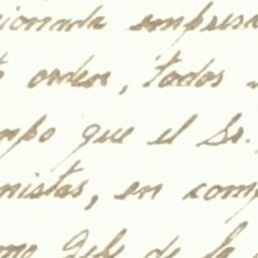 cionada empresa
orden, todos
mpo que el Sr.
nistas, en comp
mo Jefe de la